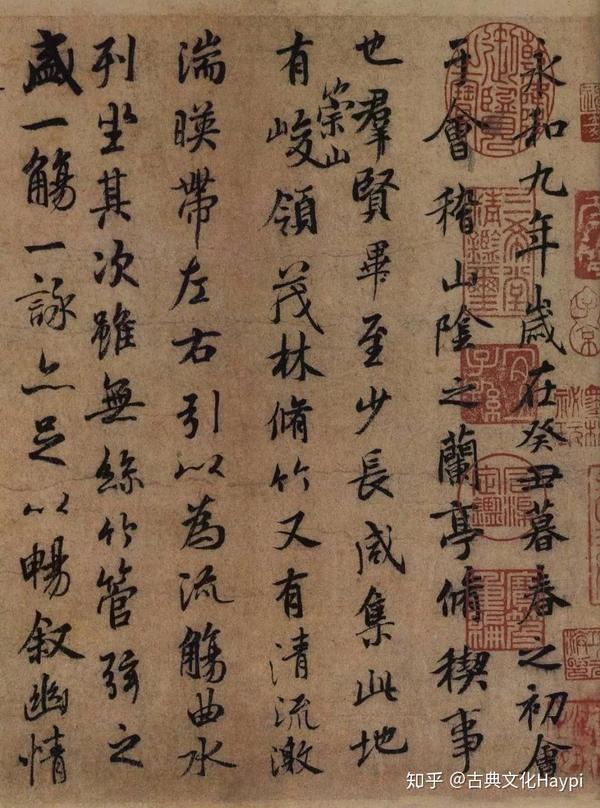 永和九年歲在癸丑暮春之初會
于會稽山陰之蘭亭脩稧事
也羣賢畢至少長咸集此地
有崇山峻領茂林脩竹又有清流激
湍暎帶左右引以為流觴曲水
列坐其次雖無絲竹管弦之
盛一觴一詠亦足以暢叙幽情
知乎 @古典文化Haypi